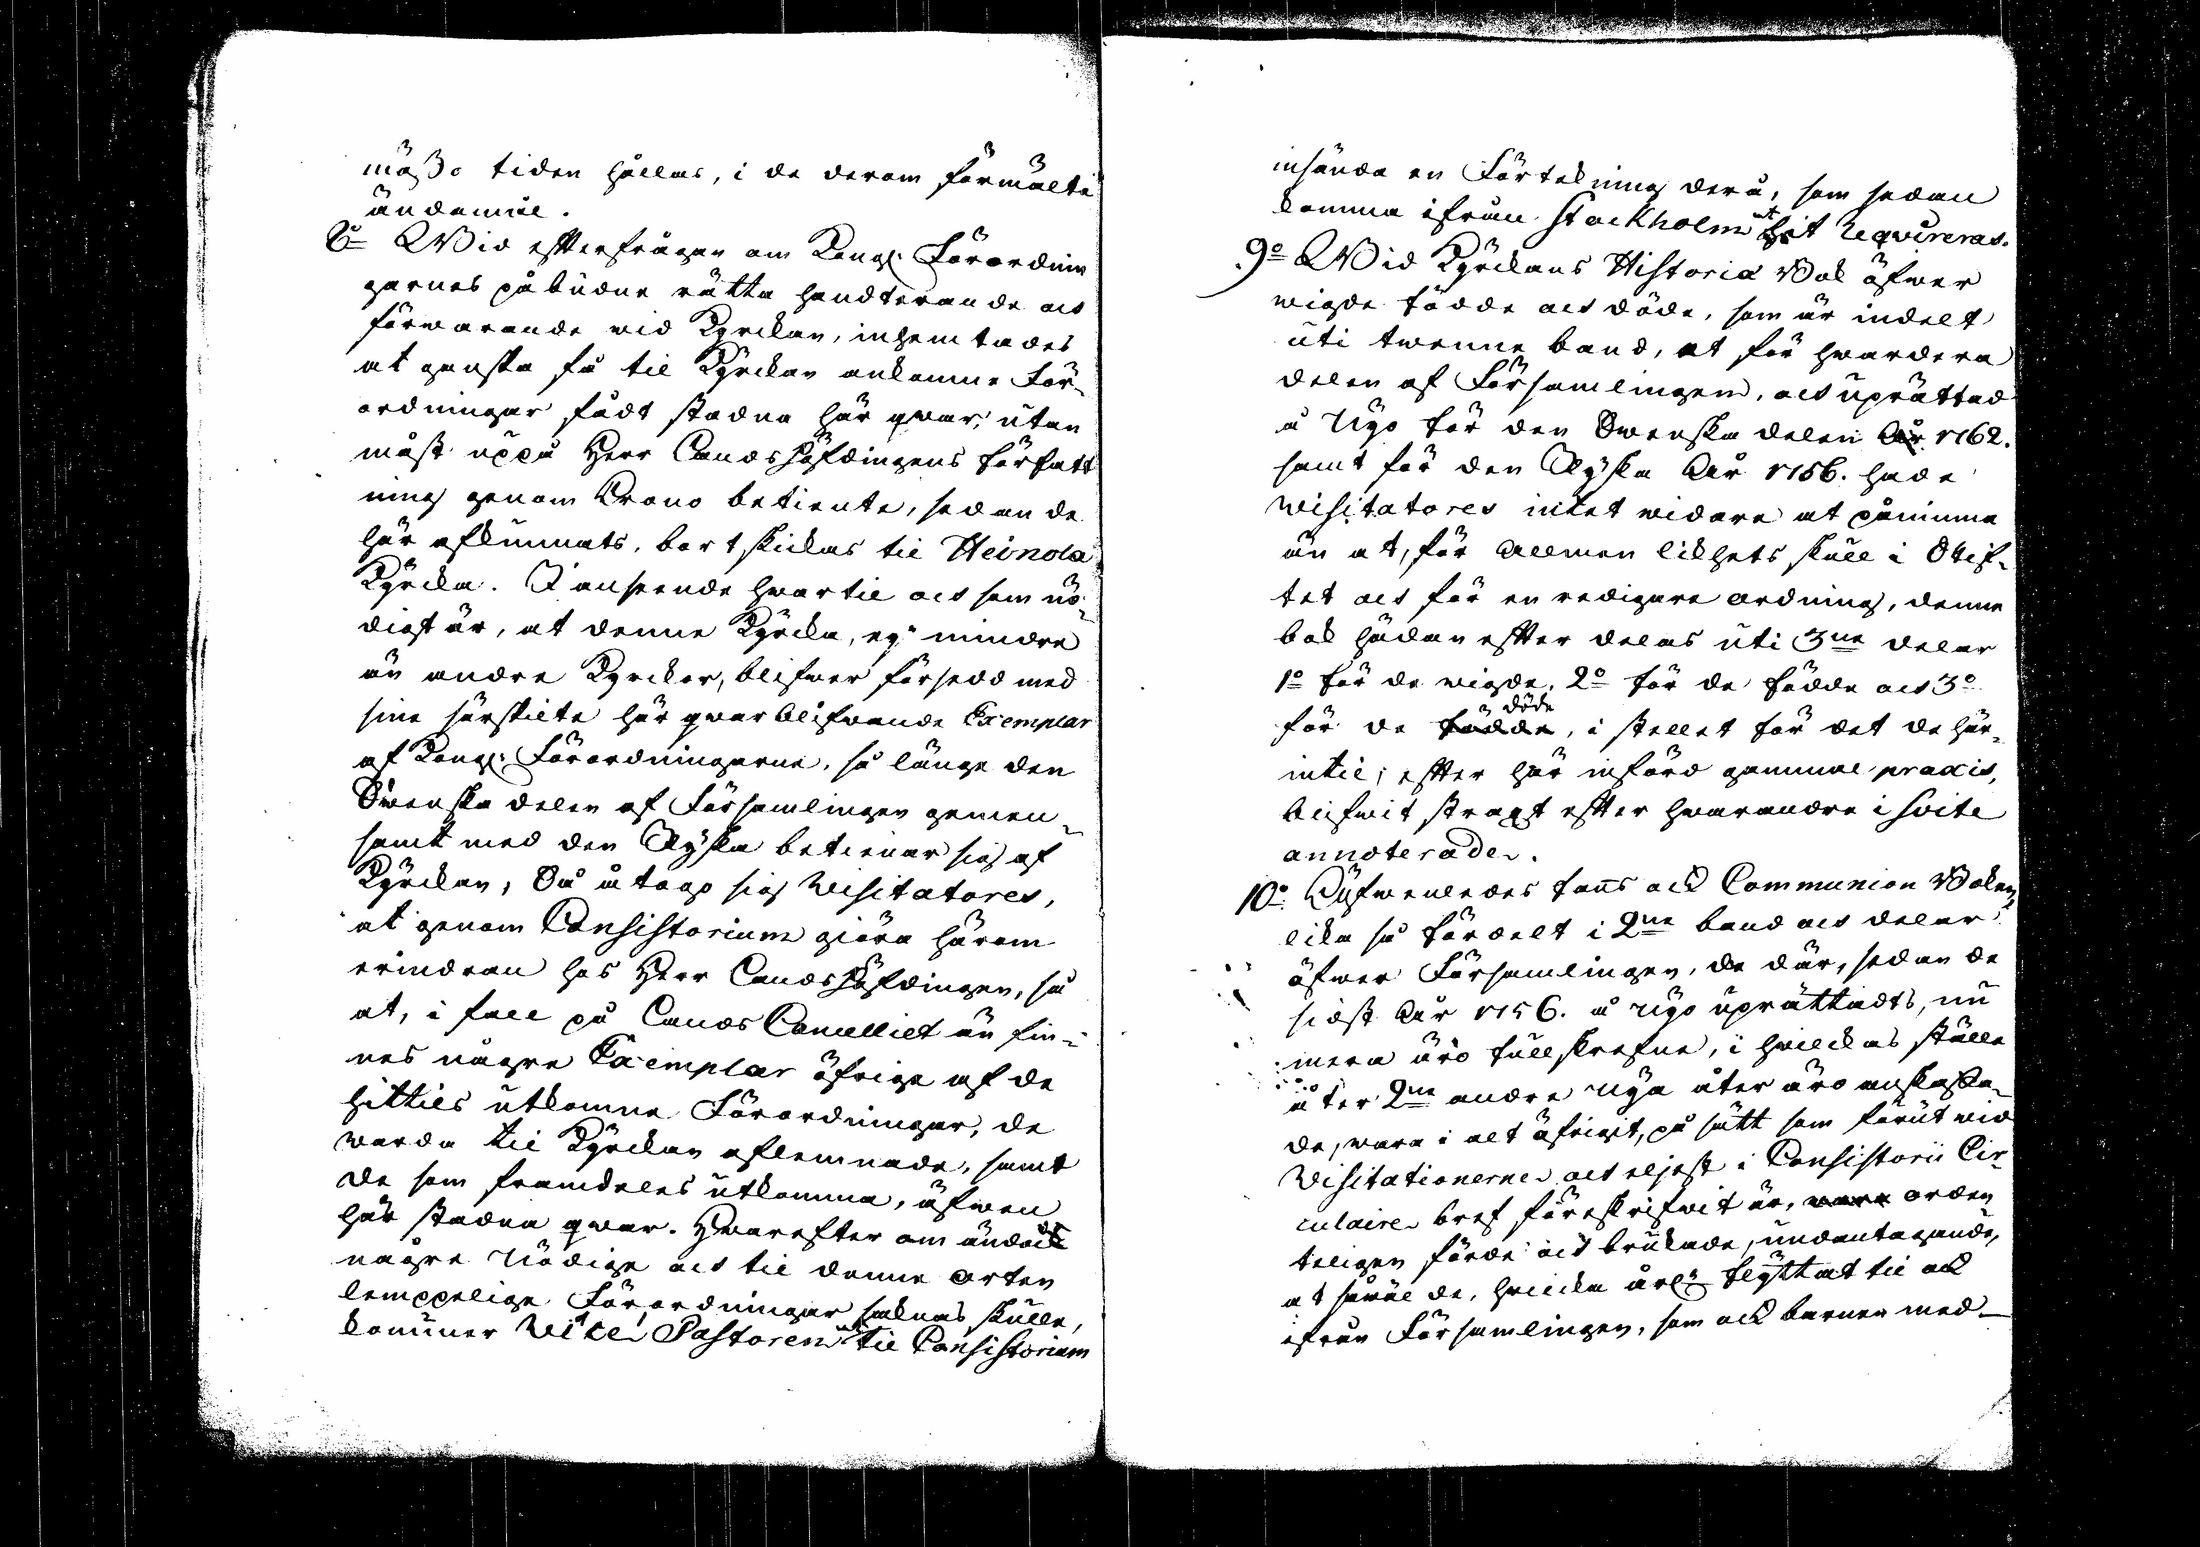 mäßo tiden hållas, i de derom förmälte
ändamål.
8o Wid efterfrågan om Kongl. Förordnin
garnes påbudne rätta handterande och
förwarande vid Kyrckan, inhemtades
at ganska få til Kyrckan ankomne För-
ordningar fådt stadna här qwar, utan
måst uppå Herr Landshöfdingens författ
ning genom Crono betiente, sedan de
här afkunnats, bortskickas til Heinola
Kyrcka. I anseende hwartil och som nö-
digt är, at denne Kyrcka, ej mindre
än andre Kyrckor, blifwer försedd med
sine särskilte här qwarblifwande Exemplar
af Kongl. Förordningarne, så länge den
Swenska delen af Församlingen gemen-
samt med den Tyska betienar sig af
Kyrckan; Så åtogo sig Visitatores,
at genom Consistorium giöra härom
erindran hos Herr Landshöfdingen, så
at, i fall på Lands Cancelliet än fin-
nes någre Exemplar öfrige af de
hittils utkomne Förordningar, de
warda til Kyrckan aflemnade, samt
de som framdeles utkomma, äfwen
här stadna qwar. Hwarefter om ändock
någre nödige och til denne orten
lemppelige Förordningar saknas skulle,
kommer Vice Pastoren til Consistorium
insända en Förtekning derå, som sedan
komma ifrån Stockholm at Reqvireras.
9o Wid Kyrckans Historia Bok öfwer
wigde födde och döde, som är indelt
uti twenne band, at för hwardera
delen af Församlingen, och uprättad
å nyo för den Swenska delen År 1762.
samt för den Tyska År 1756. hade
Visitatores intet widare at påminna
än at, för allmen likhets skull i Stif-
tet och för en redigare ordning, denne
bok hädan efter delas uti 3ne delar
1o för de wigde, 2o för de födde och 3o
för de födde döde, i stellet för det de här-
intil, efter här införd gammal praxis,
blifwit strapt efter hwarandra i Svite
annoterade.
10o Äfwenledes fans ock Communion Boken,
lika så fördelt i 2ne band och delar
öfwer Församlingen, de där, sedan de
sidst År 1756. å nyo uprättadts, nu
mera äro fullskrefne, i hwilckas ställe
åter 2ne andre nya åter äro anskaffa-
de, wara i alt öfrigit, på sätt som förut wid
Visitationerne och eljest i Consistorii Cir-
culaire bref föreskrifwit är, wara orden
teligen förde och brukade, undantagande,
at såwäl de, hwilcka årl. flyttat til och
ifrån Församlingen, som ock barnen med